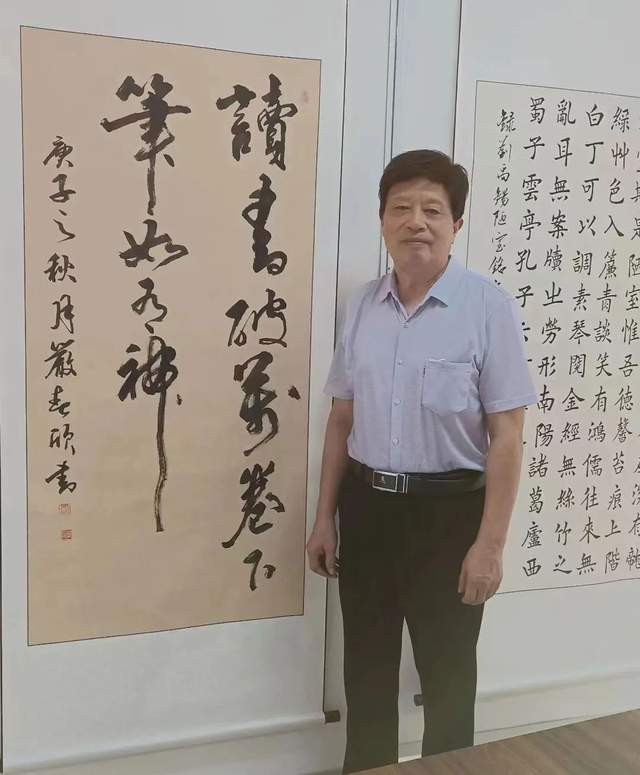 讀書破萬卷下
筆如有神
庚子之秋月嚴春碩書
是陋室惟吾德馨苔痕上階
綠艸色入簾青談笑有鴻儒往來無
白丁可以調素琴閱金經無絲竹之
亂耳無案牘之勞形南陽諸葛廬西
蜀子雲亭孔子云
錄劉禹錫陋室銘